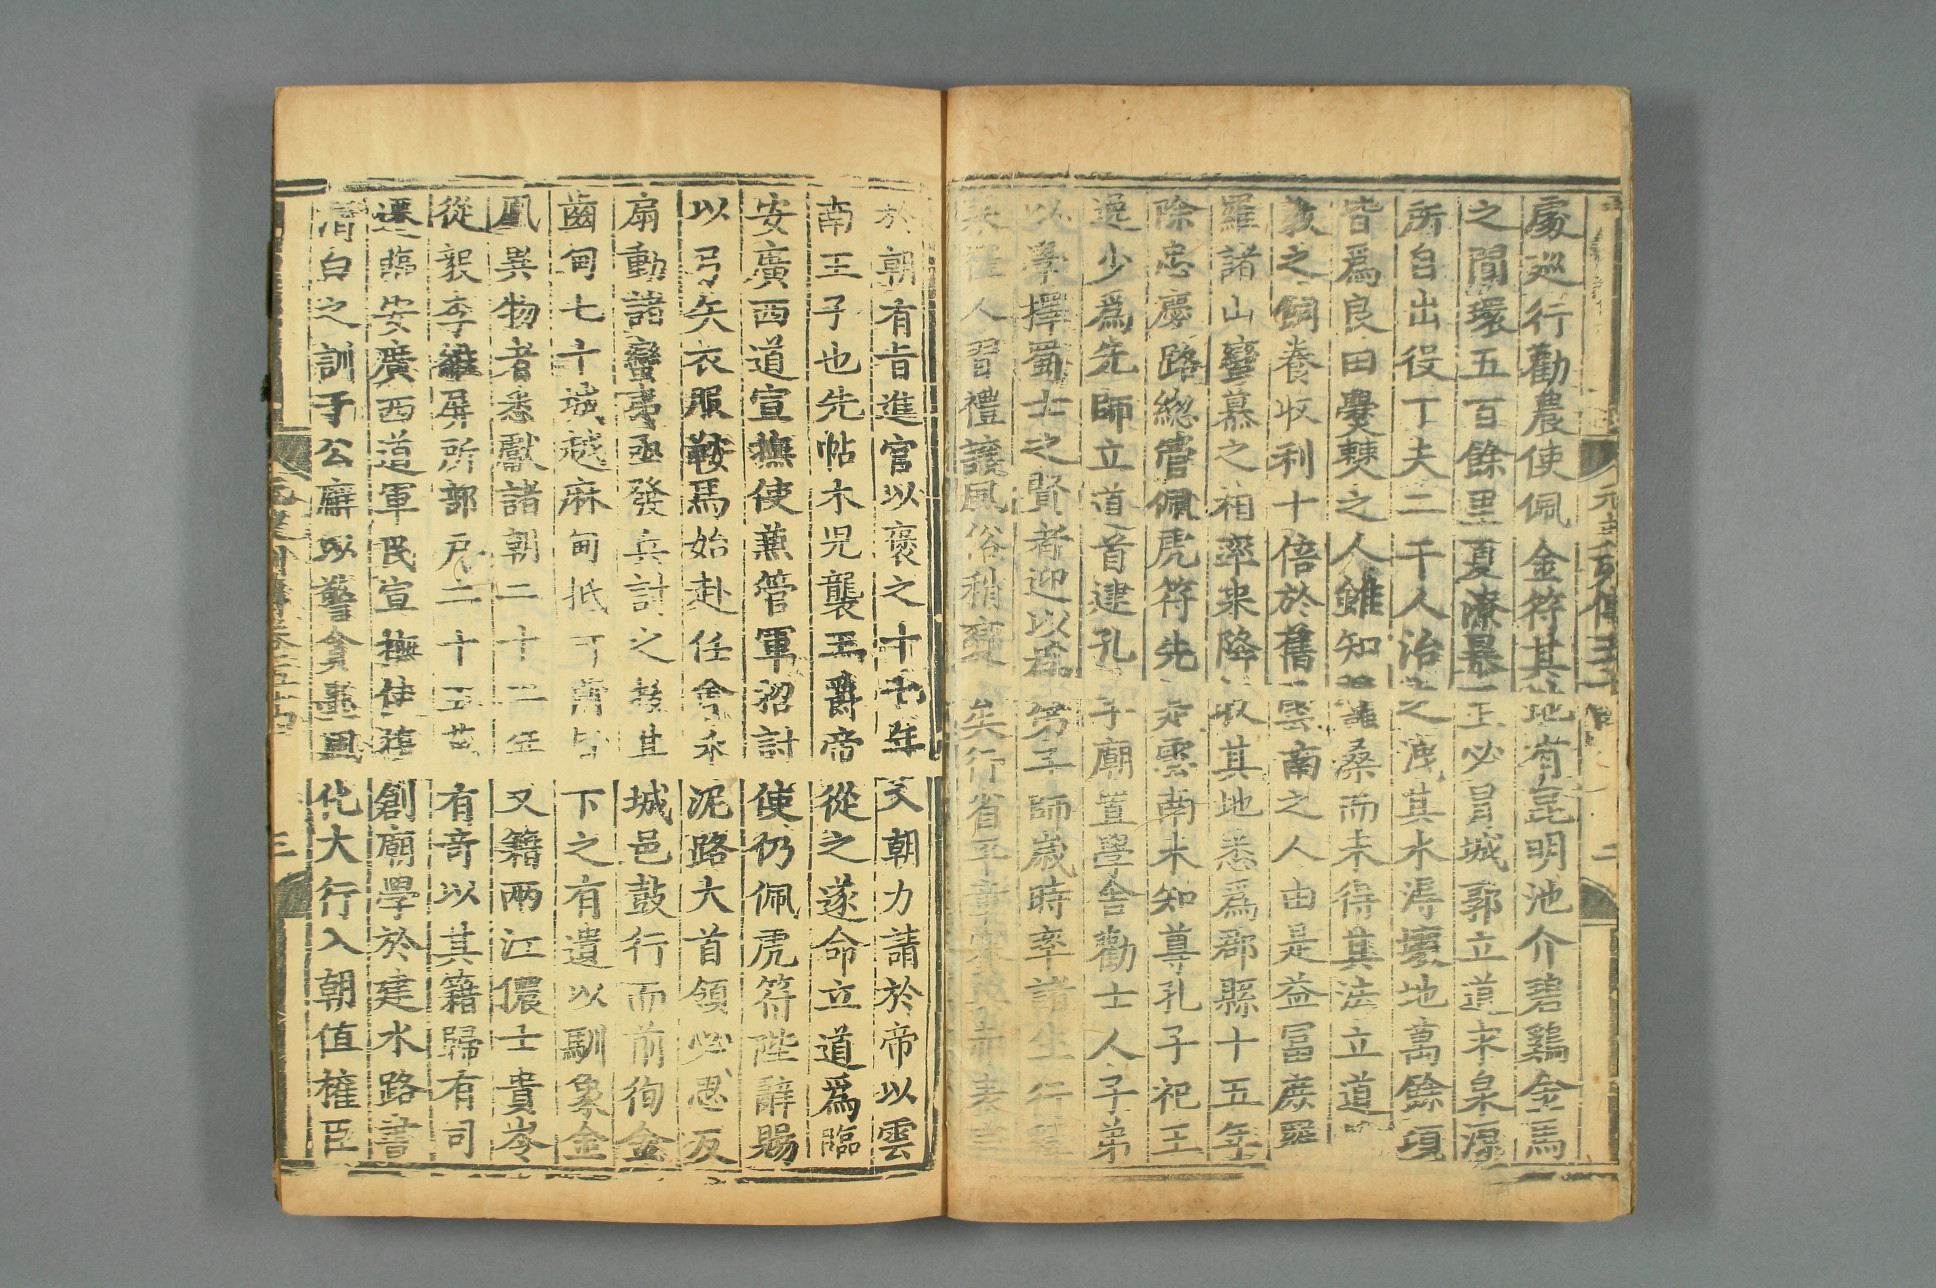 處巡行勸農使佩金符其地有昆明池介碧鷄金馬
之間環五百餘里夏潦暴至必冒城郭立道求泉源
所自出役丁夫二千人治之洩其水得壤地萬餘頃
皆爲良田爨僰之人雖知蠶桑而未得其法立道
敎之飼養收利十倍於舊雲南之人由是益富庶羅
羅諸山蠻慕之相率來降收其地悉爲郡縣十五年
除忠慶路總管佩虎符先是雲南未知尊孔子祀王
逸少爲先師立道首建孔子廟置學舍勸士人子弟
以學擇蜀士之賢者迎以爲弟子師歲時率諸生行
人習禮讓風俗稍變矣行省
元史列傳五十四
二
於朝有旨進官以褒之十七年又朝力請於帝以雲
南王子也先帖木児襲王爵帝從之遂命立道爲臨
安廣西道宣撫使兼管軍招討使仍佩虎符陛辭賜
以弓矢衣服鞍馬始赴任會禾泥路大首領必思反
扇動諸蠻夷亟發兵討之城邑鼓行而前徇金
齒甸七十城越麻甸抵可蒲皆下之有遺以馴象金
鳳異物者悉獻諸朝二十二年又籍兩江儂士貴岑
從毅李維屏所部戶二十五萬有竒以其籍歸有司
遷臨安廣西道軍民宣撫使創廟學於建水路書
清白之訓于公廨以警貪墨風化大行入朝值權臣
元史列傳卷五十四
三